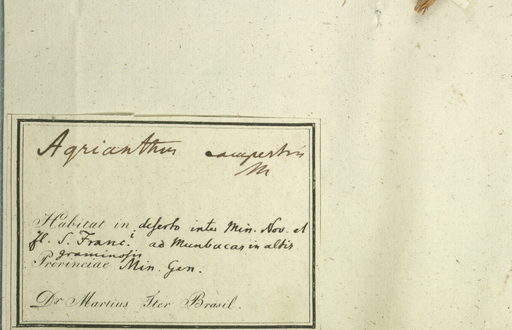 Agrianthus campestris
M
Habitat in deserto inter Min. Nov. et
fl. S. Franc. ad Munbacas in altis
graminosis
Provinciae Min. Gen.
Dr Martius Iter Brasil.